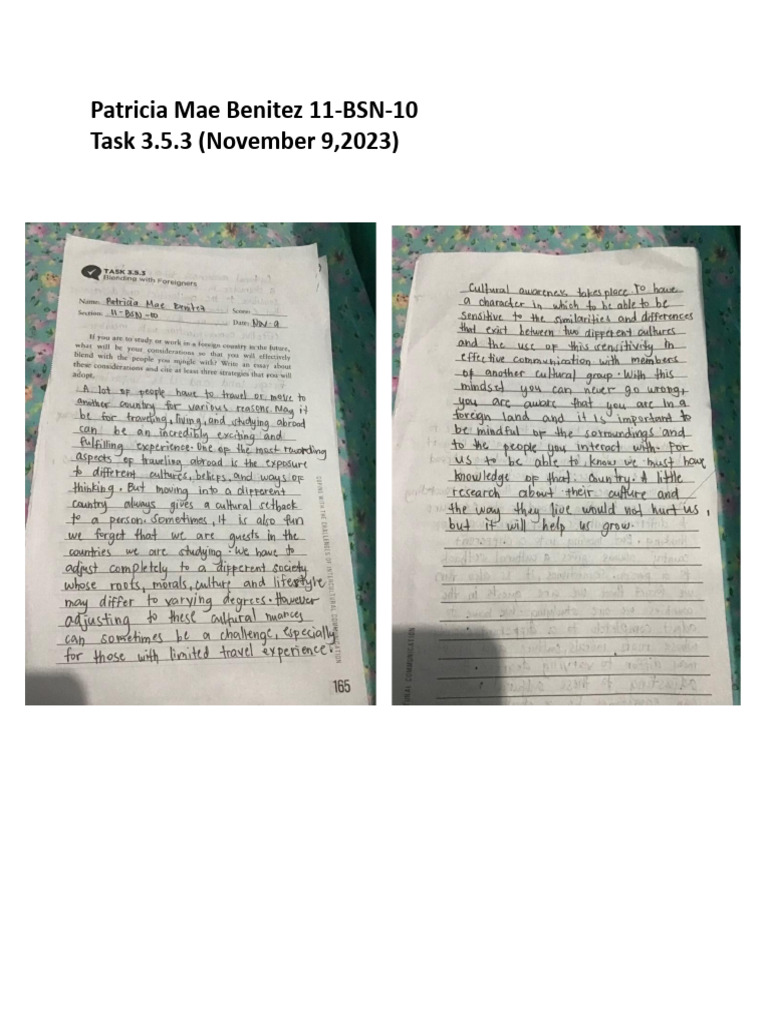 Patricia Mae Benitez 11-BSN-10
Task 3.5.3 (November 9,2023)
TASK 3.5.3
Blending with Foreigners
Name: Patricia Mae Benitez Score:
Section: 11-BSN-10 Date: Nov 9
If you are to study or work in a foreign country in the future,
what will be your considerations so that you will effectively
blend with the people you mingle with? Write an essay about
these considerations and cite at least three strategies that you will
adopt.
A lot of people have to travel or move to
another country for various reasons. May it
be for traveling, living, and studying abroad
can be an incredibly exciting and
fulfilling experience. One of the most rewarding
aspects of traveling abroad is the exposure
to different cultures, beliefs, and ways of
thinking. But moving into a different
country always gives a cultural setback
to a person. Sometimes, it is also fun
we forget that we are guests in the
countries we are studying. We have to
adjust completely to a different society
whose roots, morals, culture and lifestyle
may differ to varying degrees. However
adjusting to these cultural nuances
can sometimes be a challenge, especially
for those with limited travel experience.
COPING WITH THE CHALLENGES OF INTERCULTURAL COMMUNICATION
165
Cultural awareness takes place to have
a character in which to be able to be
sensitive to the similarities and differences
that exist between two different cultures
and the use of this sensitivity in
effective communication with members
of another cultural group. With this
mindset you can never go wrong,
you are aware that you are in a
foreign land and it is important to
be mindful of the sorroundings and
to the people you interact with. For
us to be able to know we must have
knowledge of that country. A little
research about their culture and
the way they live would not hurt us,
but it will help us grow.
URAL COMMUNICATION